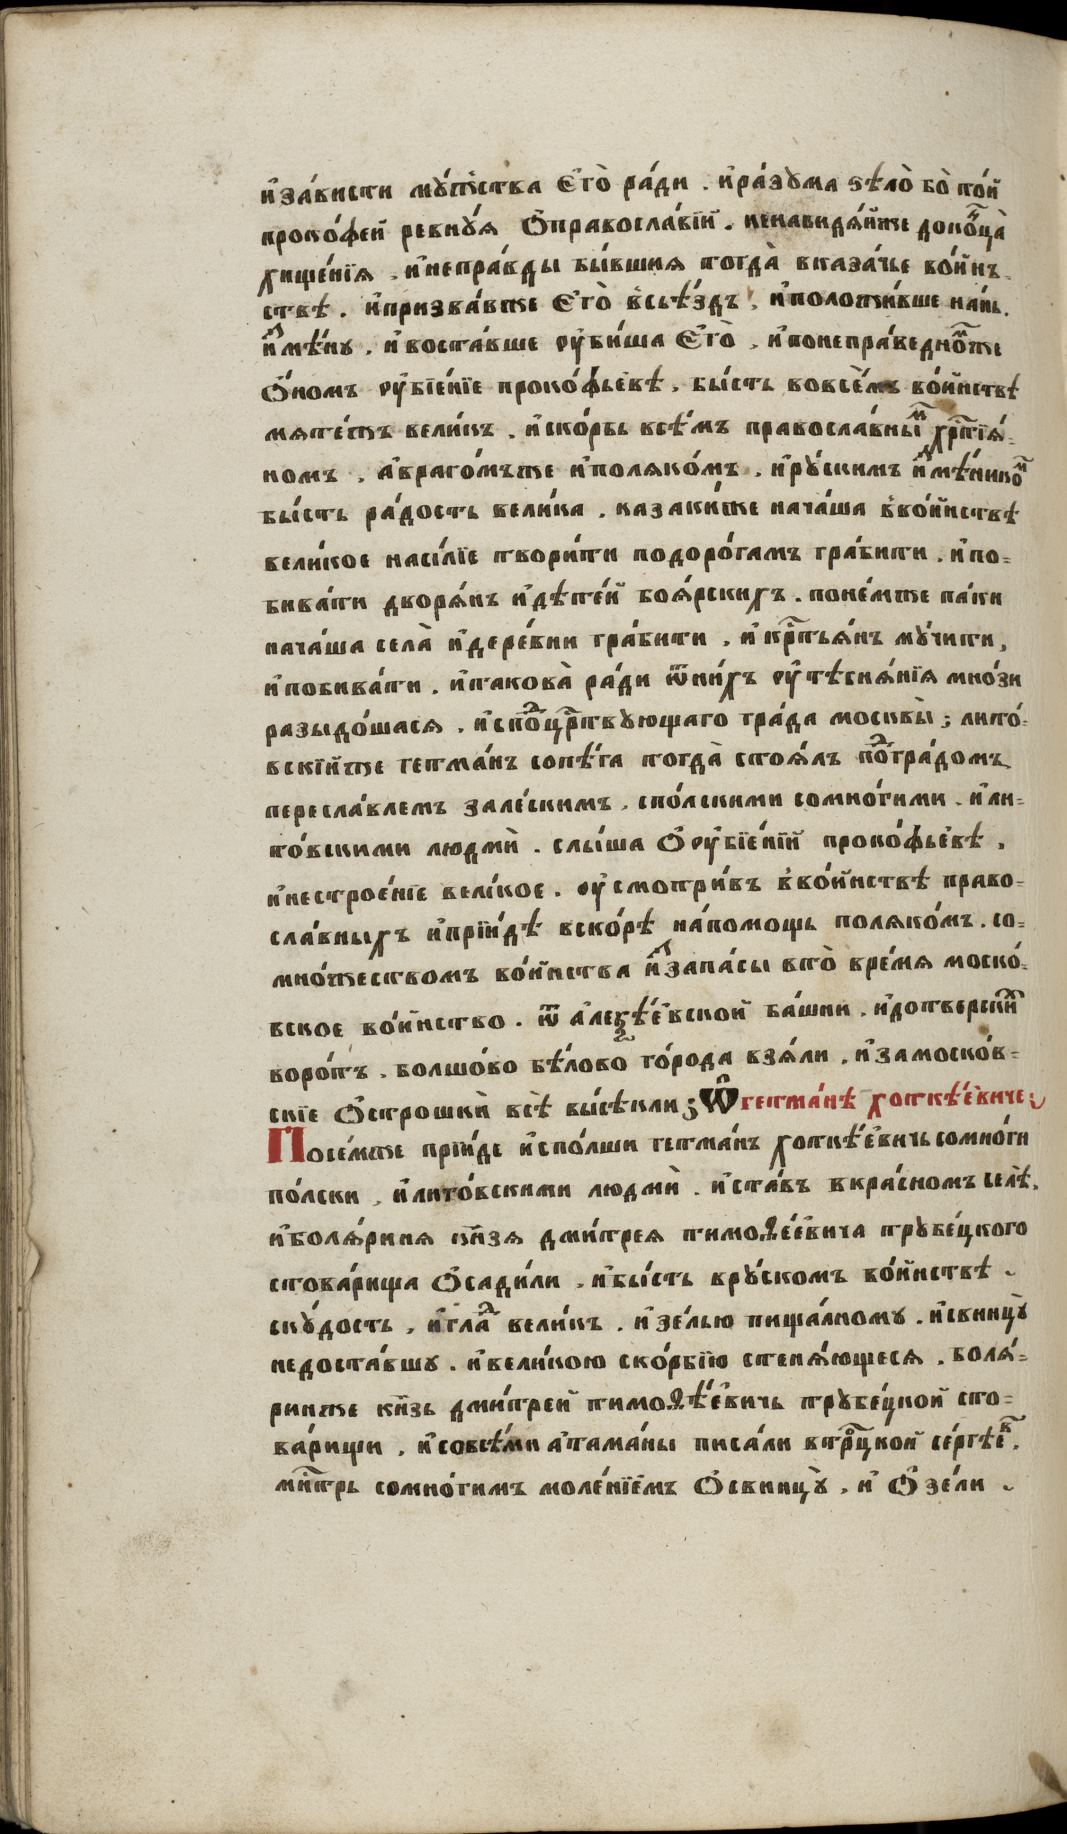 и҆за́висти мꙋ́жества є҆гѡ̀ ра́ди . и҆ра́зꙋма ѕѣлѡ̀ бо то́й
проко́фей ревнꙋ́ѧ ѻ҆правосла́вїй . ненавидѧ́йже доконⷰ҇ца̀
хище́нїѧ . и҆непра́вды бы́вшиѧ тогда̀ вказа́чье во́йнъ-
ствѣ . и҆призва́вже є҆го̀ всъѣ́здъ , и҆положи́вше на́нь .
и҆зⷥмѣ́нꙋ . и҆воста́вше ѹ҆би́ша є҆го̀ . и҆понепра́веднѡⷨже
ѻ҆́номъ ѹ҆бїе́нїе проко́фьевѣ . бы́сть вовсе́мъ во́йнствѣ
мѧте́жъ вели́къ . и҆ско́рбь всѣ́мъ правосла́вныⷨ хрⷭ҇тїѧ́-
номъ . а҆враго́мъже и҆полѧко́мъ . и҆рꙋ́скимъ и҆зⷥмѣ́никоⷨ
бы́сть ра́дость вели́ка . казаки́же нача́ша вво́йнствѣ
вели́кое наси́лїе твори́ти подоро́гамъ гра́бити . и҆по-
бива́ти дворѧ́нъ и҆дѣте́й боѧ́рскихъ . поне́мже па́ки
нача́ша села̀ и҆дере́вни гра́бити . и҆крⷭ҇тьѧ́нъ мꙋ́чити ,
и҆побива́ти . и҆такова̀ ра́ди ѿни́хъ ѹ҆тѣсне́нїѧ мно́зи
разыдо́шасѧ . и҆споⷣцрⷭ҇твꙋющаго гра́да москвы̀ ; лито́-
вскїйже гетма́нъ сопѣ́га тогда̀ стоѧ́лъ поⷣгра́домъ
пересла́влемъ зале́скимъ . спо́лскими сомно́гими . и҆ли-
то́вскими людмѝ . слы́ша ѻ҆ѹ҆бїе́нїй проко́фьевѣ ,
и҆нестрое́нїе вели́кое . ѹ҆смотри́въ вво́йнствѣ право-
сла́вныхъ и҆прїи́дѣ вско́рѣ на́помощь полѧко́мъ . со-
мно́жествомъ во́йнства и҆зⷥапа́сы вто̀ вре́мѧ моско́-
вское во́йнство . ѿ а҆леѯѣ́евской ба́шни . и҆дотверскиⷯ
воро́тъ . болшо́во бѣ́лово го́рода взѧ́ли . и҆замоско́в-
скїе ѻ҆строшкѝ всѣ̀ вы́сѣкли ; Ѡ҆гетма́нѣ хоткѣ́евиче ;
Посе́мже прїи́де и҆спо́лши гетма́нъ хоткѣ́евичь сомно́ги
по́лски . и҆лито́вскими людмѝ . и҆ста́въ вкра́сномъ селѣ̀ .
и҆болѧ́рина кн҃зѧ дми́трея тимоѳе́евича трꙋбе́цкого
стова́рища ѻ҆сади́ли . и҆бы́сть врꙋ́скомъ во́йнствѣ
скꙋ́дость . и҆глаⷣ вели́къ . и҆зе́лью пища́лномꙋ . и҆свинцꙋ̀
недоста́вшꙋ . и҆вели́кою ско́рбїю стенѧ́ющесѧ . болѧ́-
ринже кн҃зь дми́трей тимоѳѣ́евичь трꙋбе́цкой сто-
ва́рищи . и҆совсѣ́ми а҆тама́ны писа́ли втрⷪ҇цкой се́ргѣеⷡ .
мⷭ҇тⷬрь сомно́гимъ моле́нїемъ ѻ҆свинцꙋ̀ . и҆ ѻ҆ зе́ли